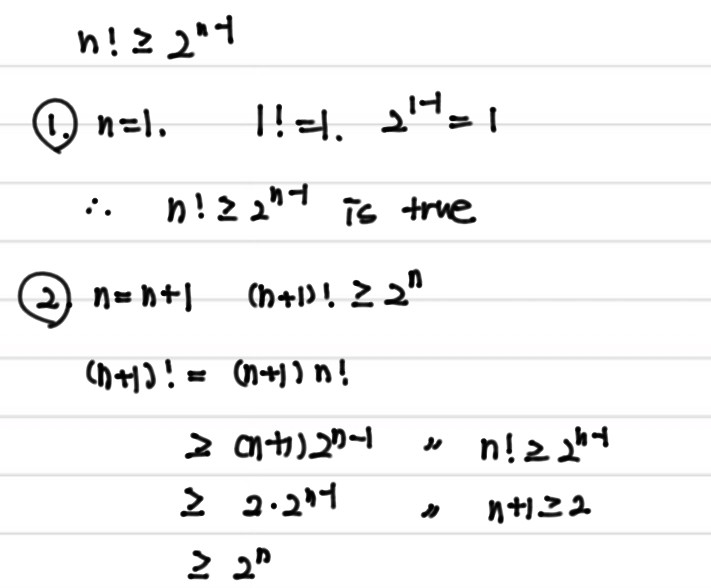 n! ≥ 2^{n-1}
①. n=1. 1!=1. 2^{1-1}=1
∴ n! ≥ 2^{n-1} is true
②. n=n+1 (n+1)! ≥ 2^n
(n+1)! = (n+1) n!
≥ (n+1)2^{n-1} 〃 n! ≥ 2^{n-1}
≥ 2·2^{n-1} 〃 n+1≥2
≥ 2^n